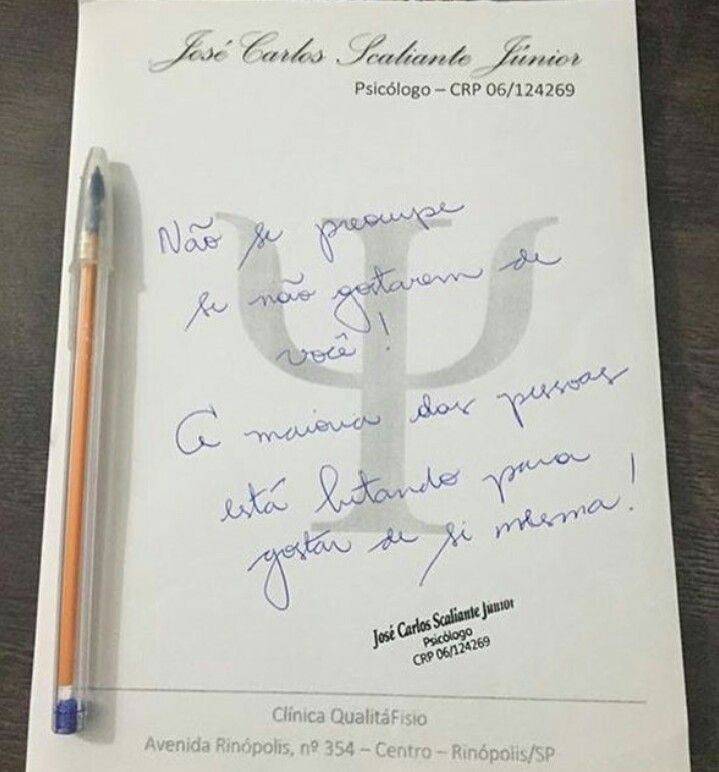 José Carlos Scaliante Júnior
Psicólogo – CRP 06/124269
Não se preocupe
se não gostarem de
você!
A maioria das pessoas
está lutando para
gostar de si mesma!
José Carlos Scaliante Junior
Psicólogo
CRP 06/124269
Clínica QualitáFisio
Avenida Rinópolis, nº 354 – Centro – Rinópolis/SP